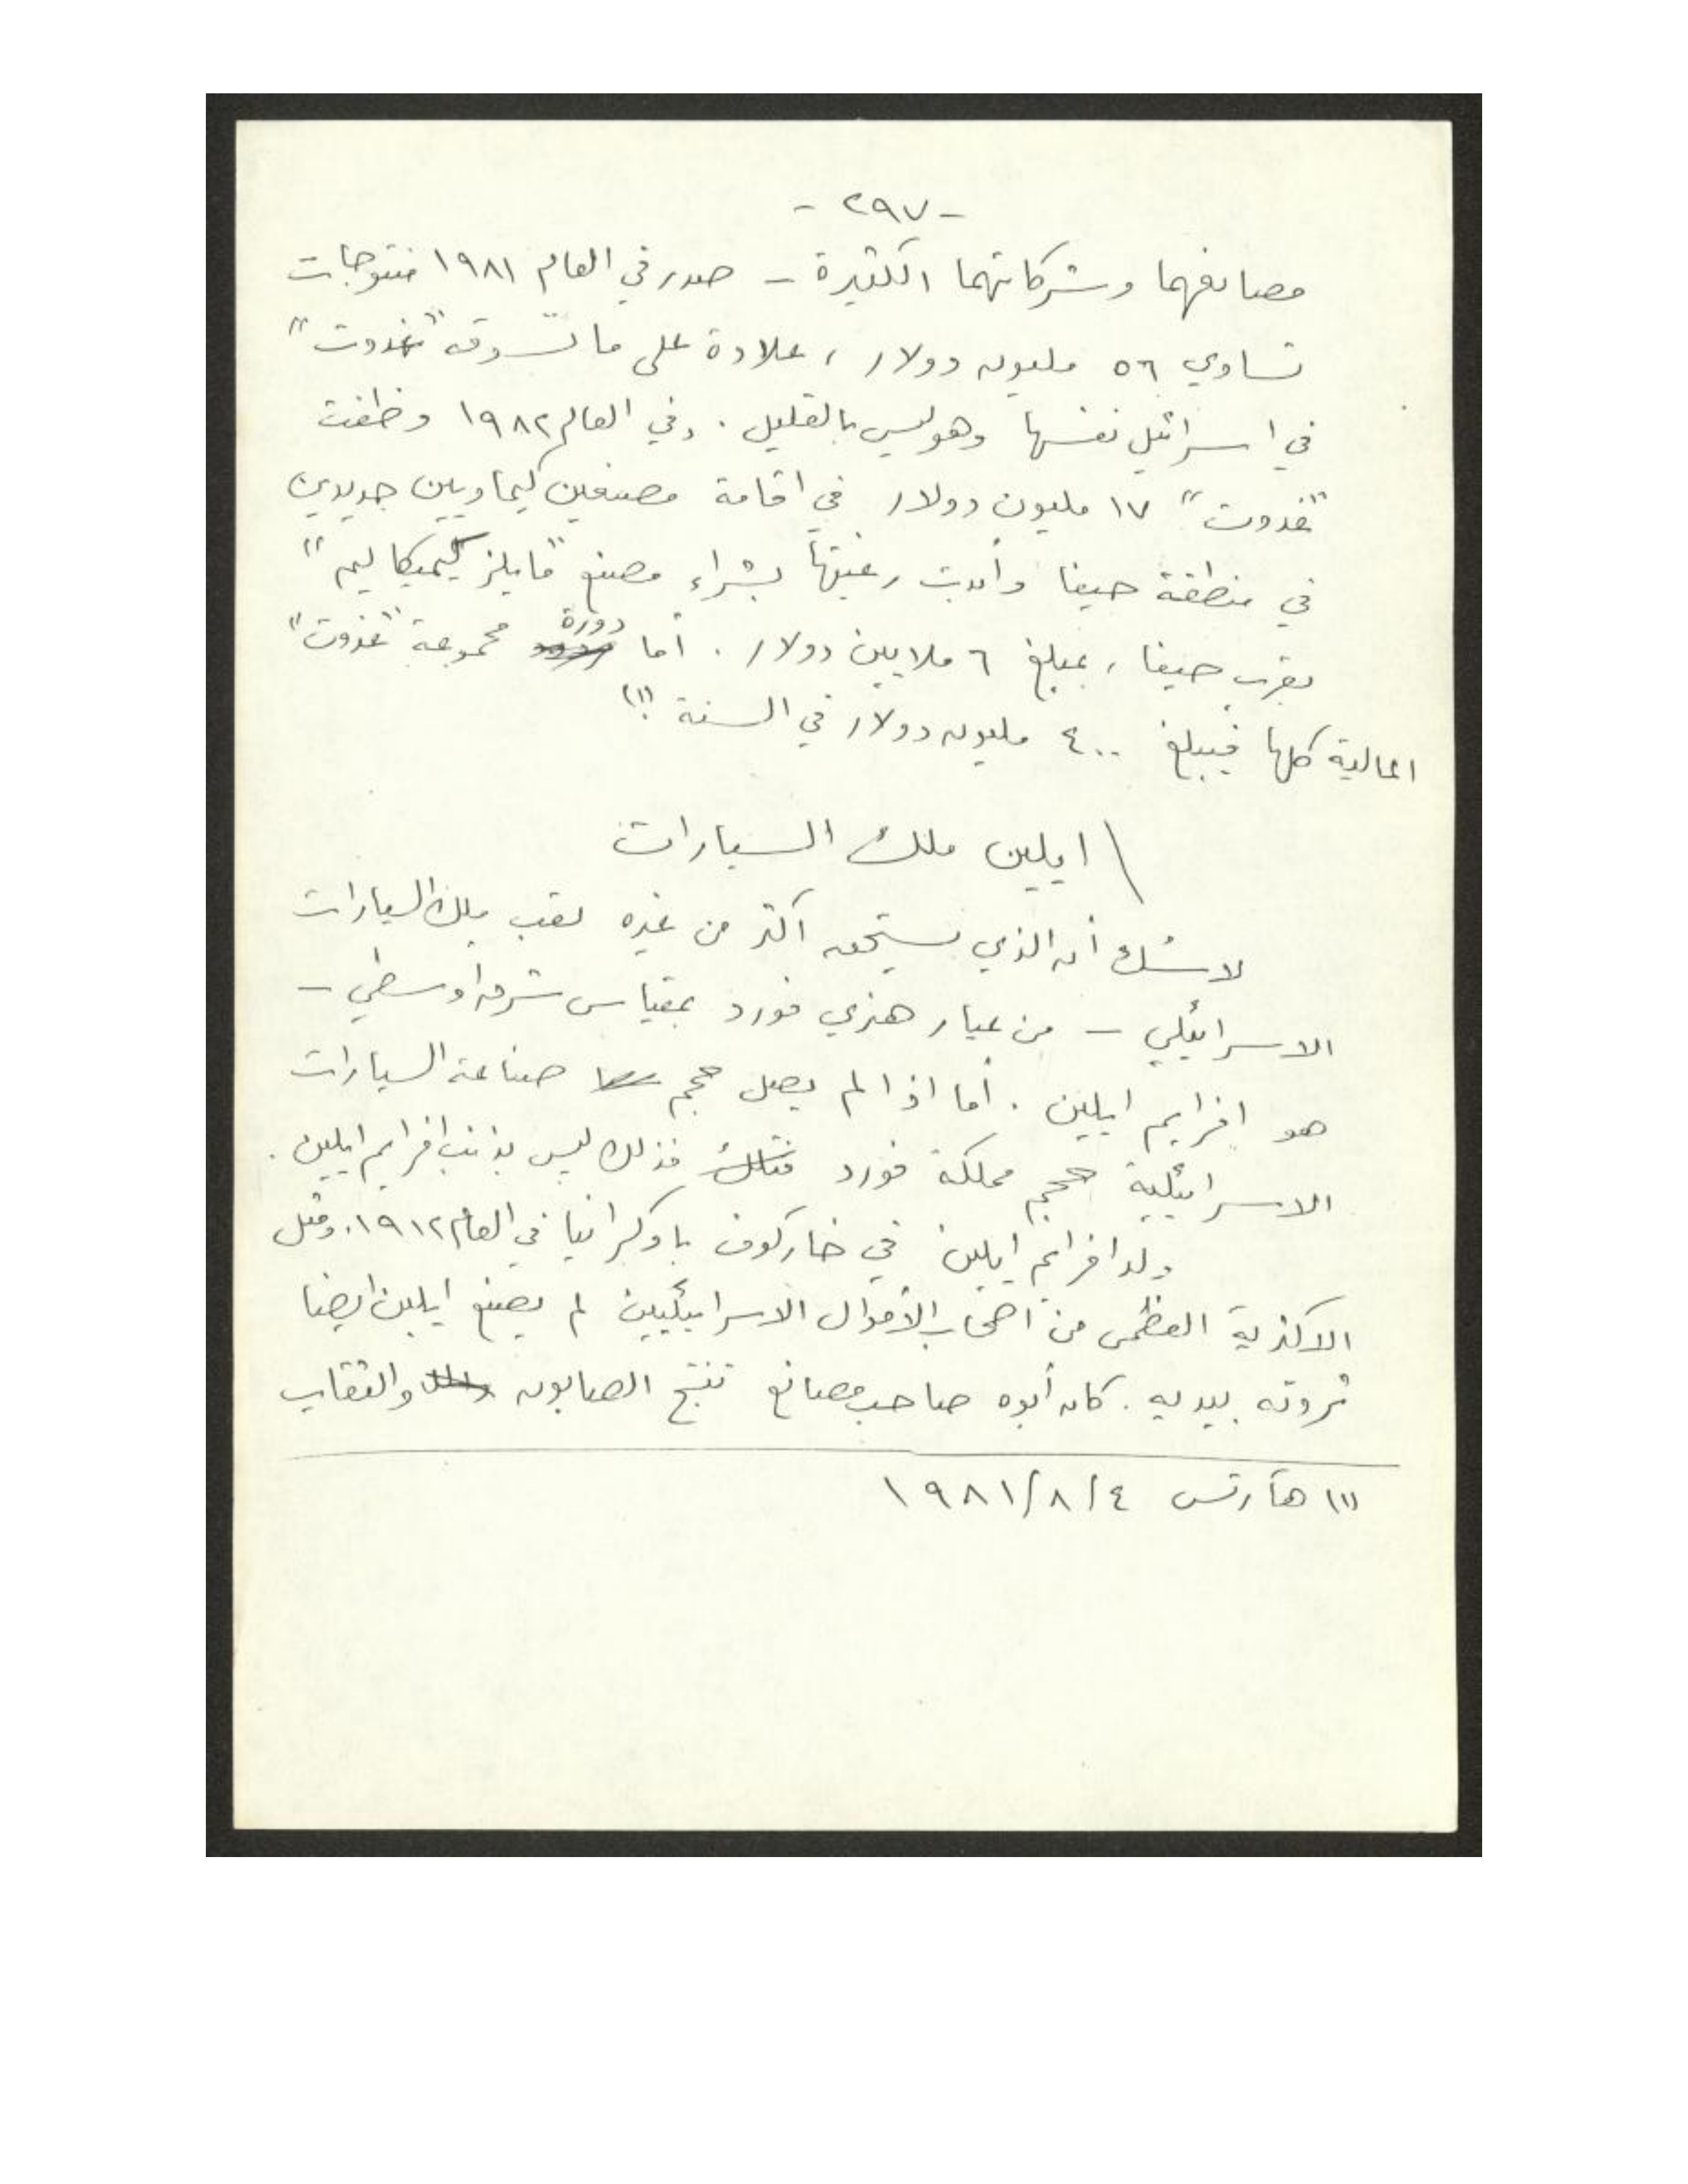 - ٢٩٧ -
مصانعهما وشركاتهما الكثيرة - صدر في العام ١٩٨١ منتوجات
تساوي ٥٦ مليون دولار، علاوة على ما تسوقه "غدوت"
في اسرائيل نفسها وهو ليس بالقليل. وفي العام ١٩٨٢ وظفت
"غدوت" ١٧ مليون دولار في اقامة مصنعين كيماويين جديدين
في منطقة حيفا وأبدت رغبتها بشراء مصنع "مايلز كيميكاليم"
بقرب حيفا، بمبلغ ٦ ملايين دولار. أما دورة مجموعة "غدوت"
المالية كلها فيبلغ ٤٠٠ مليون دولار في السنة (١)
ايلين ملك السيارات
لا شك أن الذي يستحق أكثر من غيره لقب ملك السيارات
الاسرائيلي - من عيار هنري فورد بمقياس شرق اوسطي -
هو افرايم ايلين. أما اذا لم يصل حجم صناعة السيارات
الاسرائيلية حجم مملكة فورد فذلك ليس بذنب افرايم ايلين.
ولد افرايم ايلين في خاركوف باوكرانيا في العام ١٩١٢. ومثل
الاكثرية العظمى من أصحاب الأموال الاسرائيليين لم يصنع ايلين ايضا
ثروته بيديه. كان أبوه صاحب مصانع تنتج الصابون والثقاب
(١) هآرتس ٤/٨/١٩٨١